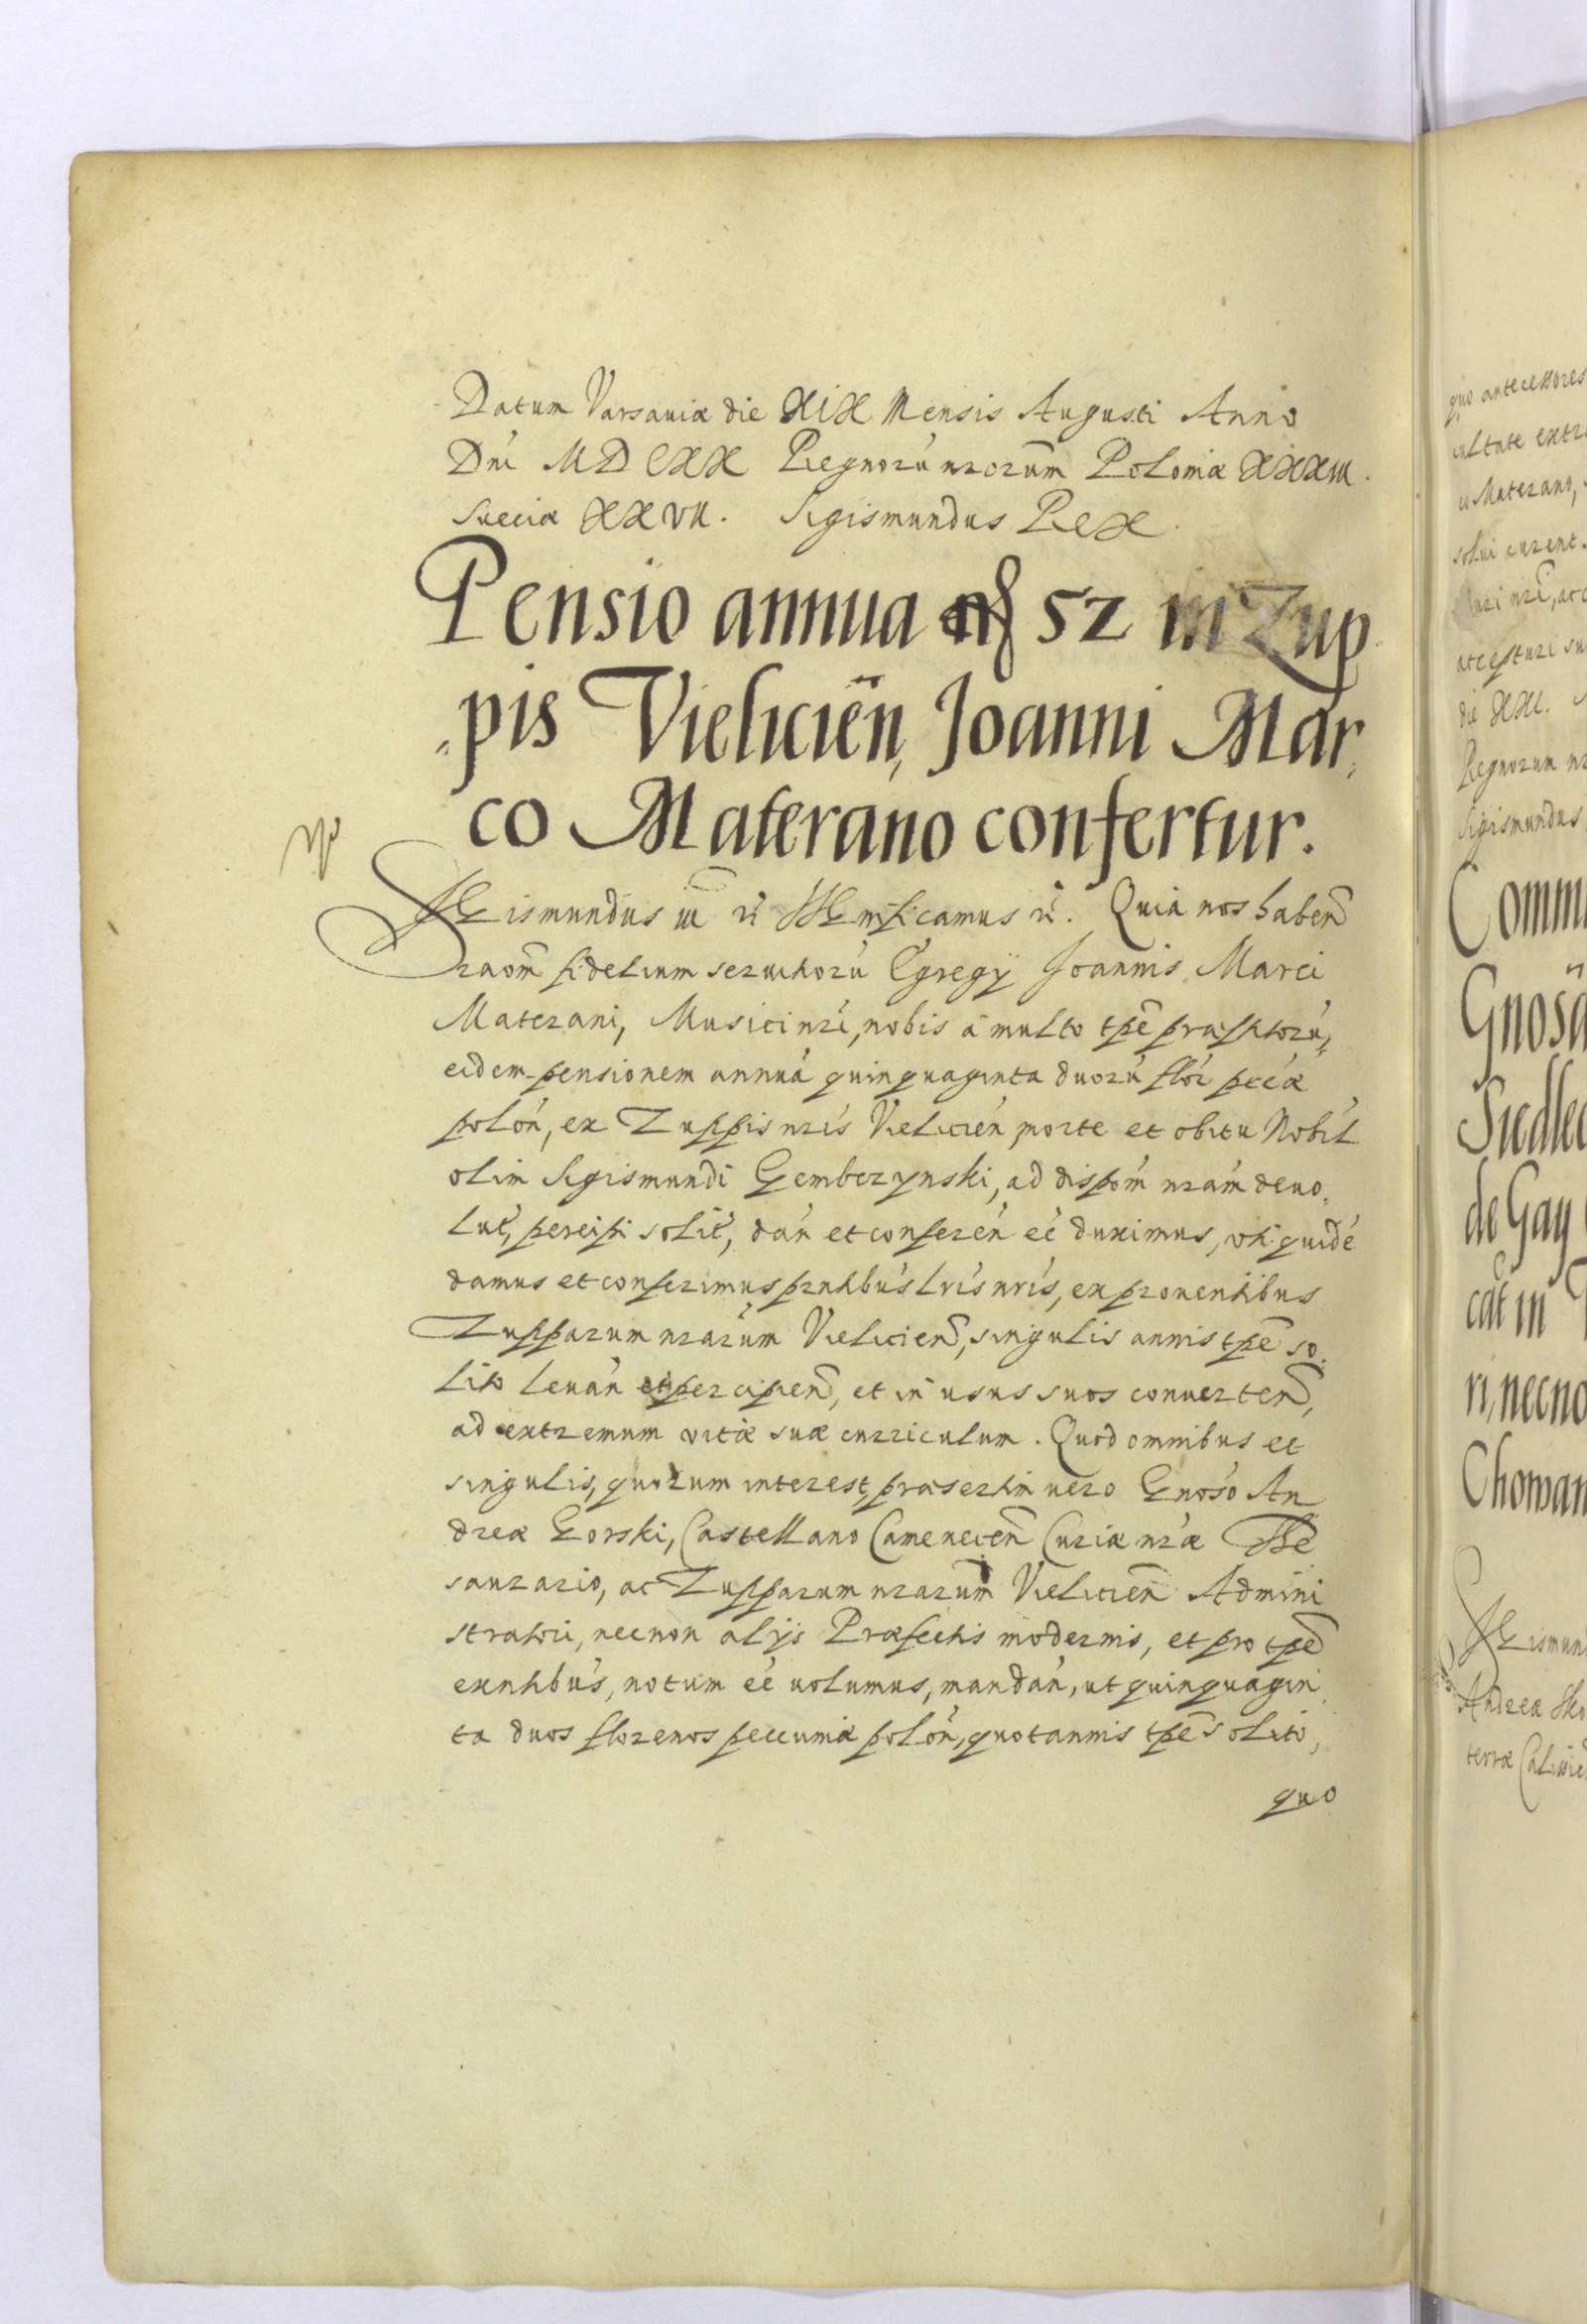 Datum Varsauiæ die XIX Mensis Augusti Anno
Dni MDCXX Regnorū nrorūm Poloniæ XXXIII.
Sueciæ XXVII. Sigismundus Rex.
Pensio annua 52 in Zup
pis Vielicien̄, Joanni Mar,
co Materano confertur.
Sigismundus III Significamus. Quia nos haben̄
raōm fidelium seruitiorū Egregÿ Joannis Marci
Materani, Musici nrī, nobis a multo tp̄e præstitorū,
eidem pensionem annuā quinquaginta duorū flōr peciæ
polōn, ex Zuppis nrīs Vielicien̄ morte et obitu Nobil
olim Sigismundi Gembczynski, ad dispōm nrām deuo,
lut̄, percipi solit̄, dān et conferēn eē duximus, uti quidē
damus et conferimus prntibūs lrīs nrīs, ex prouentibus
Zupparum nrarūm Vielicien̄, singulis annis tp̄e so,
lito leuān et percipien̄, et in usus suos conuerten̄,
ad extremum vitæ suæ curriculum. Quod omnibus et
singulis, quorum interest, præsertim uero Gnosō An
dreæ Gorski, Castellano Camenecen̄ Curiæ nrǣ The
saurario, ac Zupparum nrarūm Vielicien̄ Admini
stratori, necnon alijs Præfectis modernis, et pro tp̄e
exntibūs, notum eē uolumus, mandān, ut quinquagin
ta duos florenos peccuniæ polōn, quotannis tp̄e solito,
quo
quo antecessores
Materano,
solui curent.
die XXI.
Regnorum
Sigismundus
Commu
Gnosā
Siedlec
de Gay
cāt in
ri, necno
Choman
Sigismun
Andreæ
terræ Calissie